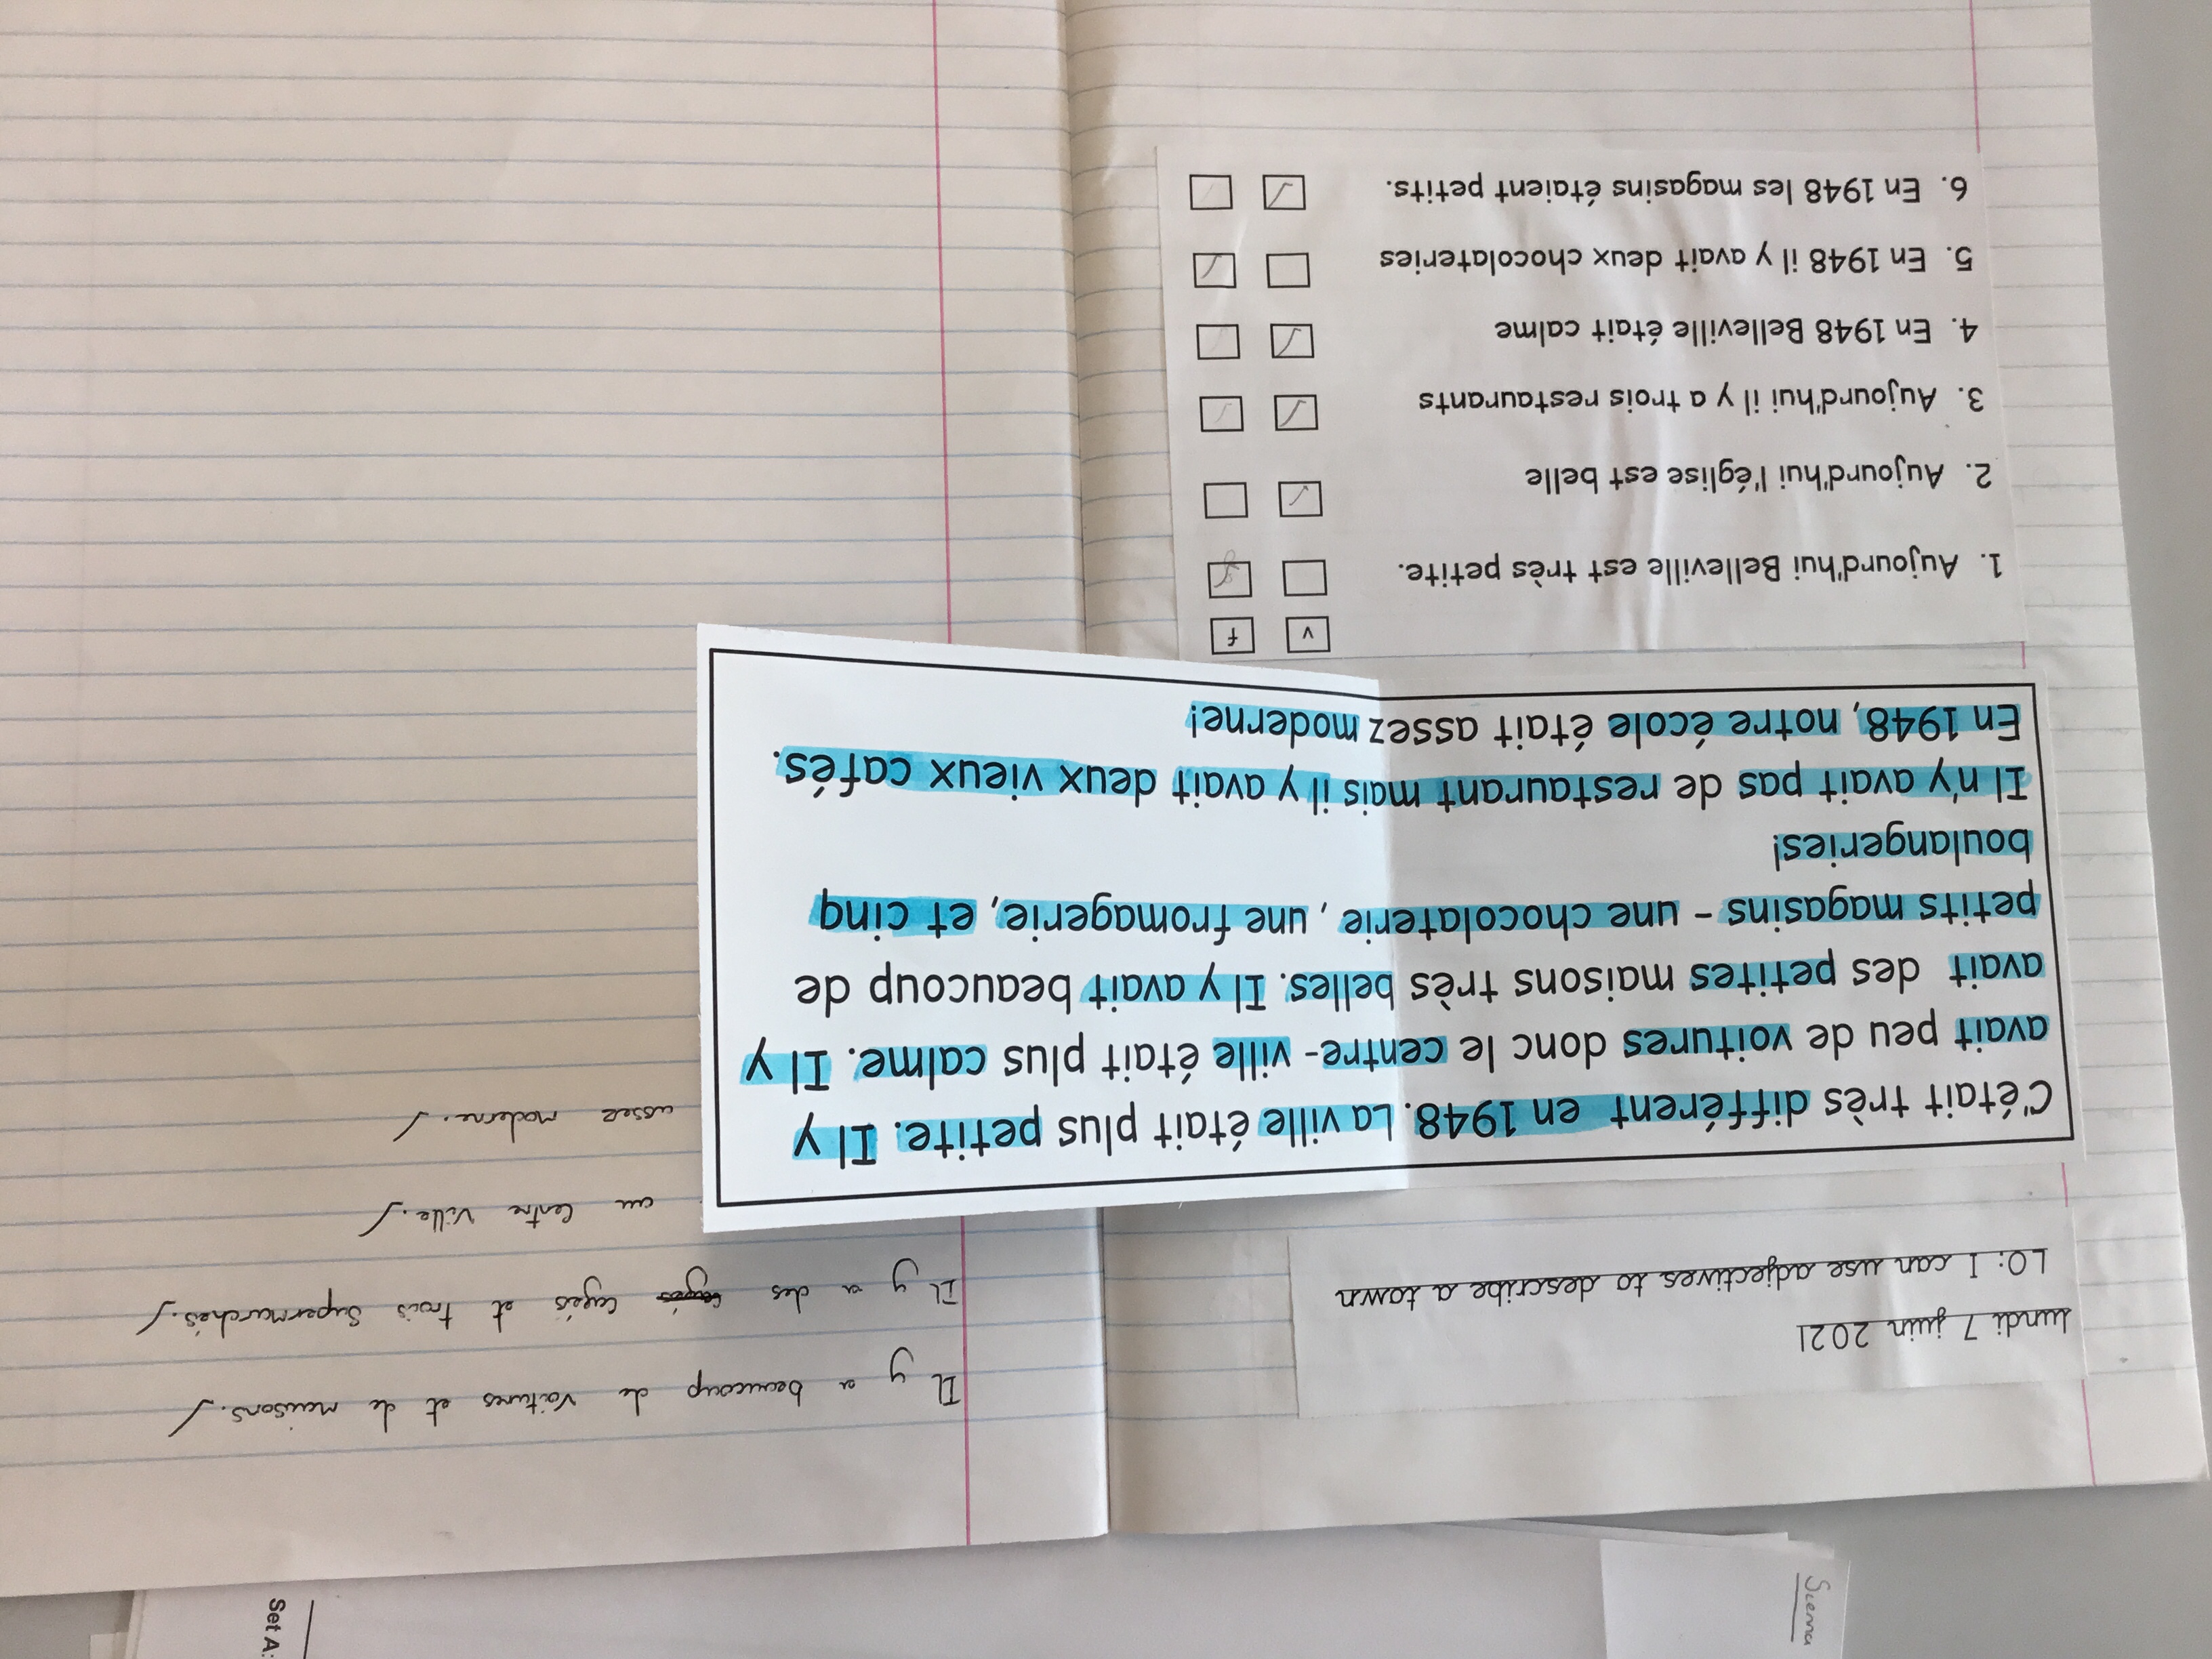 lundi 7 juin 2021
LO: I can use adjectives to describe a town
C'était très différent en 1948. La ville était plus petite. Il y
avait peu de voitures donc le centre- ville était plus calme. Il y
avait des petites maisons très belles. Il y avait beaucoup de
petits magasins - une chocolaterie, une fromagerie, et cinq
boulangeries!
Il n'y avait pas de restaurant mais il y avait deux vieux cafés.
En 1948, notre école était assez moderne!
v f
1. Aujourd'hui Belleville est très petite.
2. Aujourd'hui l'église est belle
3. Aujourd'hui il y a trois restaurants
4. En 1948 Belleville était calme
5. En 1948 il y avait deux chocolateries
6. En 1948 les magasins étaient petits.
Il y a beaucoup de voitures et de maisons.
Il y a des cafés et trois supermarchés.
au centre ville.
assez moderne.
Sienna
Set A: